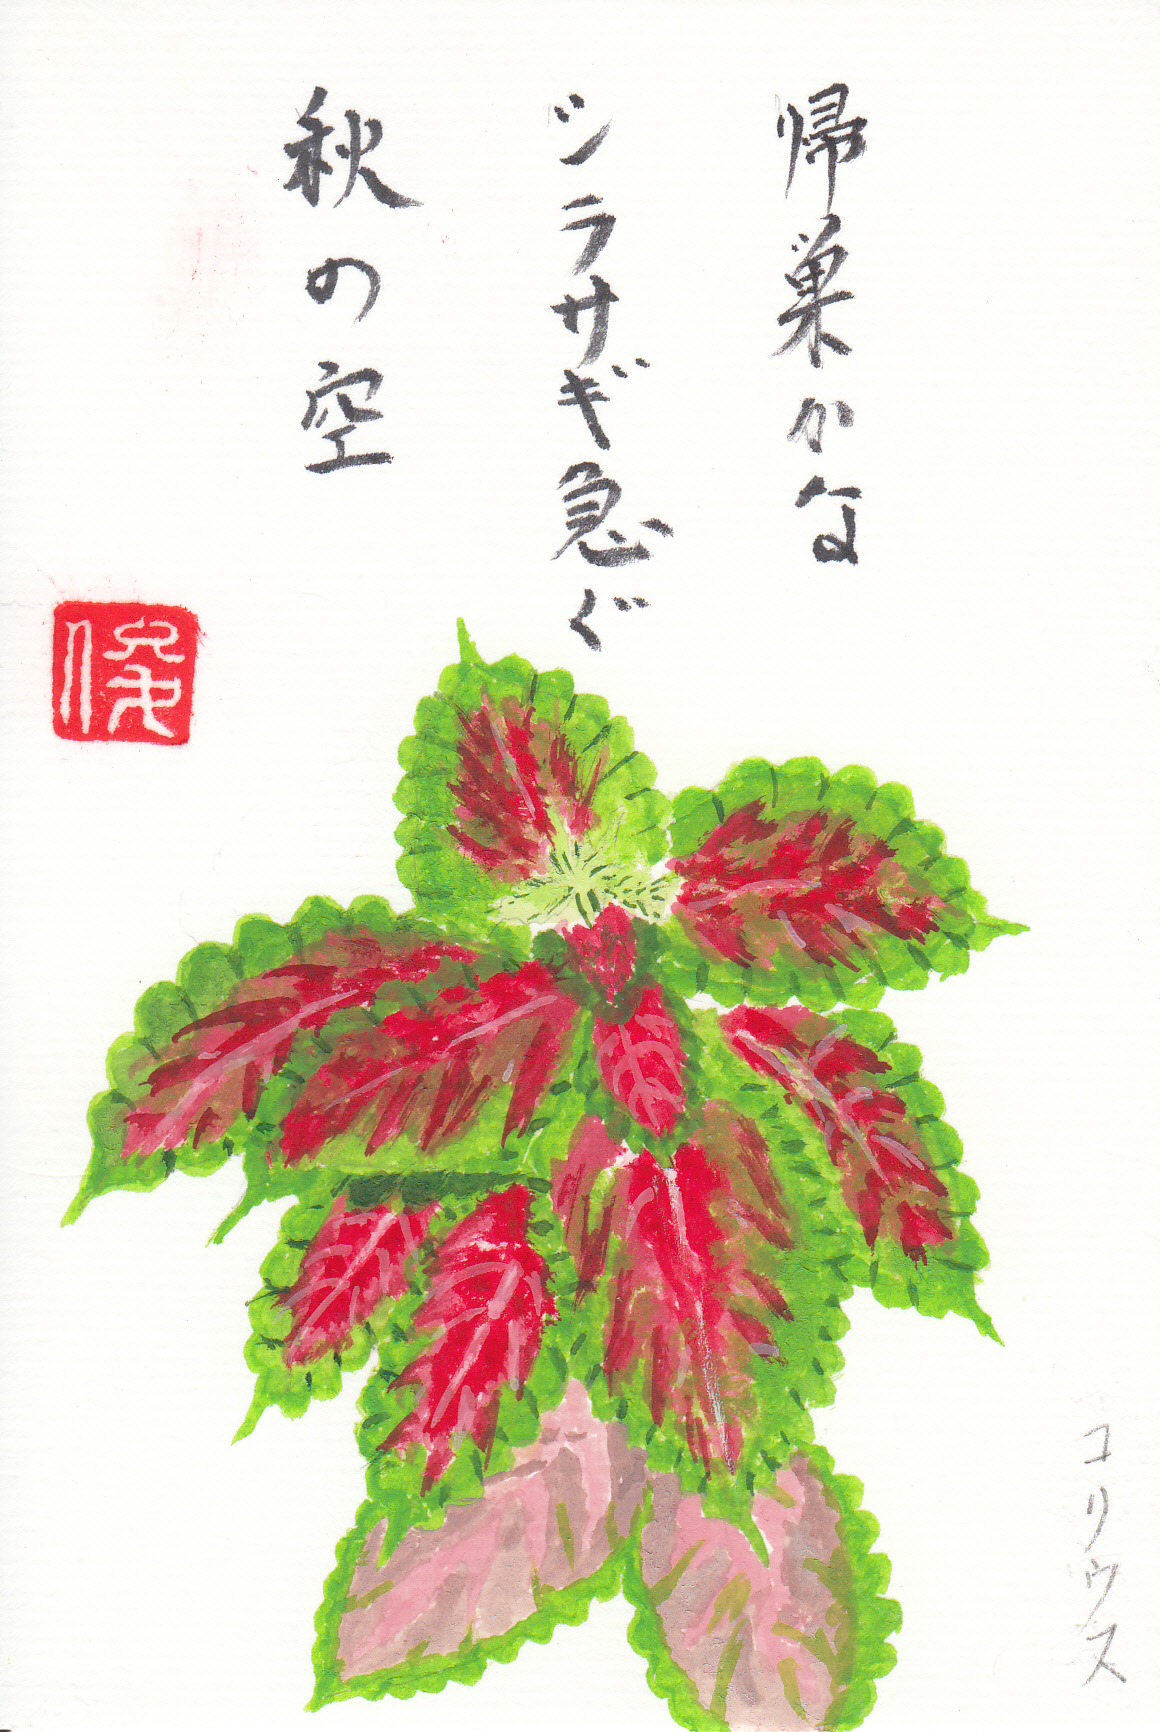 帰巣かな
シラサギ急ぐ
秋の空
コリウス